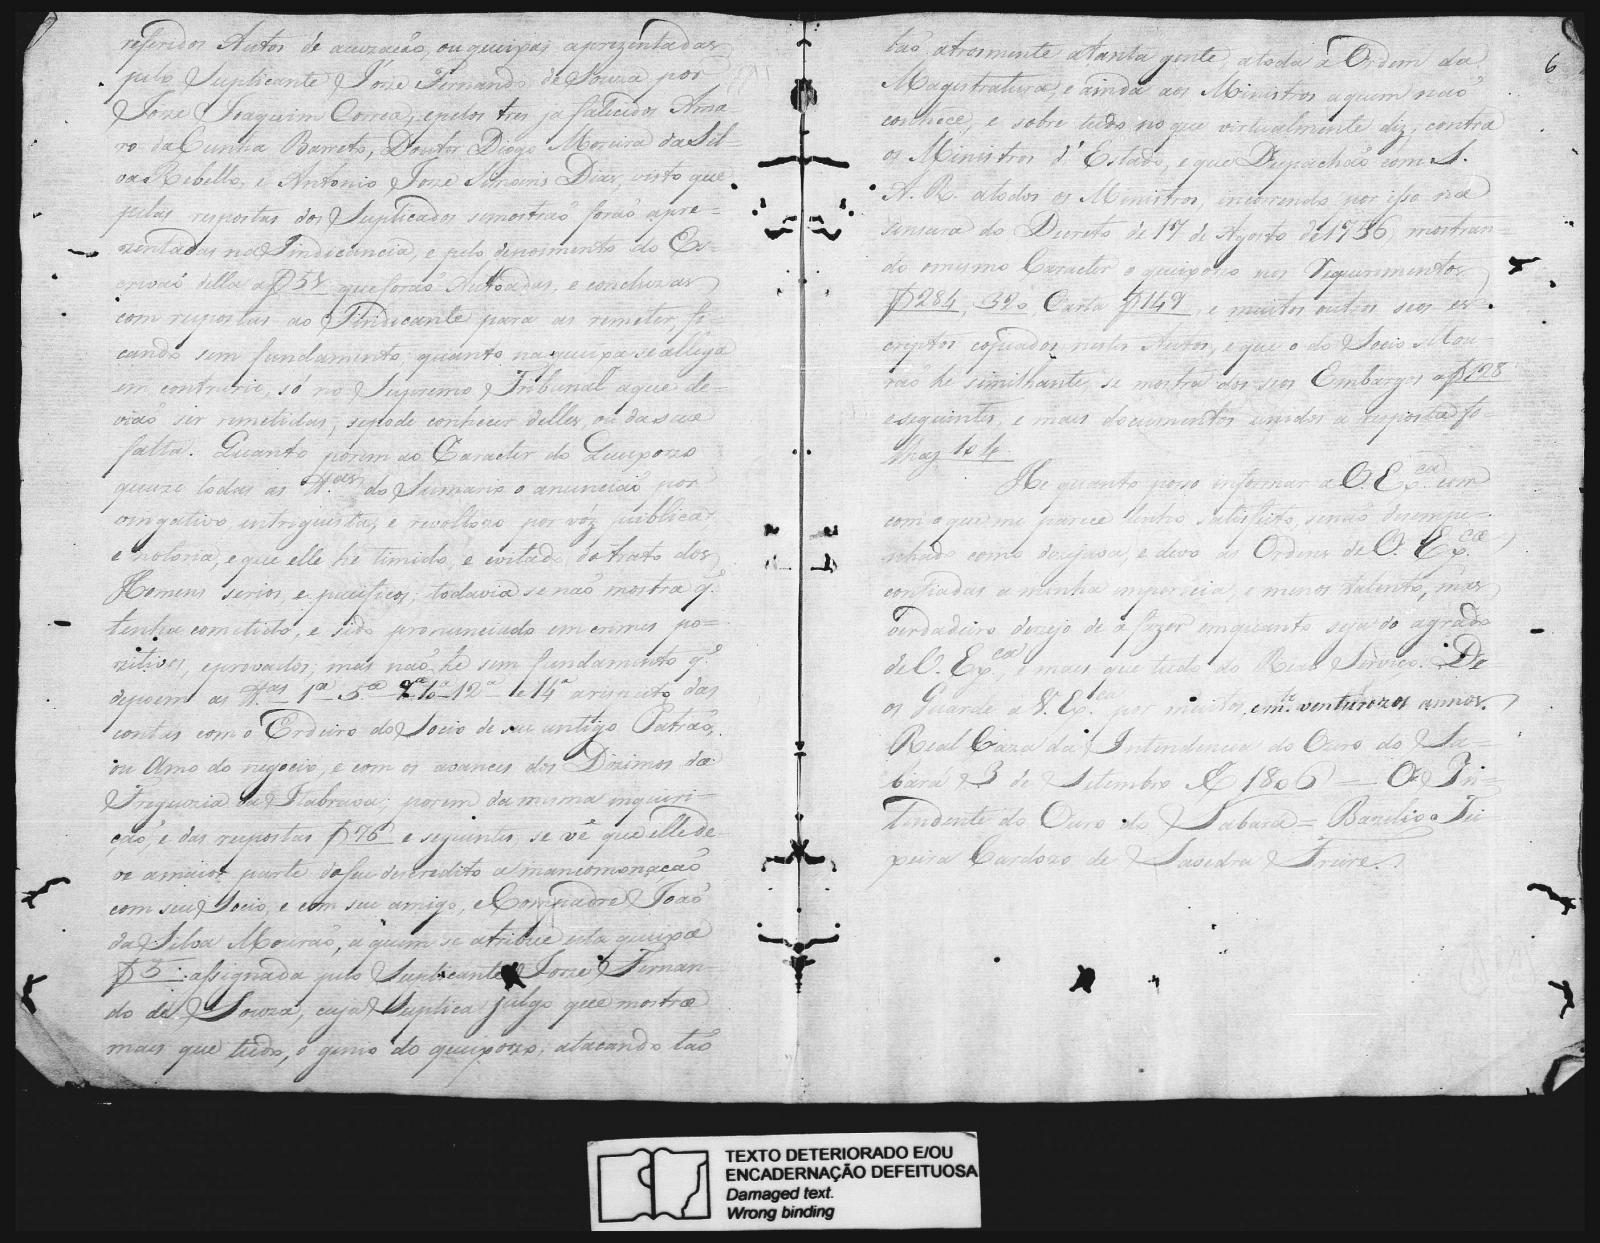 referidos Autos de acuzacaõ, ou queixas aprezentadas
pelo Suplicante Jozé Fernando de Souza por
Joze Joaquim Correa, e pelos tres ja falecidos Ama
ro da Cunha Barreto, Doutor Diogo Moreira da Sil-
va Rebello, e Antonio Joze Dias, visto que
pelas respostas dos Suplicados se mostraõ foraõ apre=
zentadas na Sindicancia, e pelo depoimento do Es-
crivaõ della a f 58 que foraõ Autoadas, e concluzas
com respostas ao Sindicante para as remeter, fi-
cando sem fundamento quanto na queixa se allega
em contrario, só no Supremo Tribunal a que de-
viaõ ser remetidas, se pode conhecer dellas, ou da sua
falta. Quanto porem ao Caracter do Queixozo
quazi todas as do Sumario o anunciaõ por
intriguista, e revoltozo por vóz publica
e notoria, e que elle he temido, e evitado do trato dos
Homens serios, e pacificos; todavia se naõ mostra q.
tenha cometido, e sido pronunciado em crimes po=
zitivos, e provados; mas naõ he sem fundamento q.
depoem as 1ª 5ª 10ª 12ª e 14ª a respeito das
contas com o Erdeiro do Socio de seu antigo Patraõ,
ou Amo do negocio, e com os avances dos Dizimos da
Freguezia da Itabrava; porem da mesma inquiri-
çaõ, e das respostas f 76 e seguintes, se vê que elle de-
ve a maior parte do seu descredito a mancomonaçaõ
com seu Socio, e com seu amigo, e Compadre Joaõ
da Silva Mouraõ, a quem se atribue esta queixa
f 3 assignada pelo Suplicante Joze Fernan-
do de Souza, cuja Suplica julgo que mostra
mais que tudo, o genio do queixozo; atacando taõ
taõ atrosmente a tanta gente, a toda a Ordem da
Magistratura, e ainda aos Ministros a quem naõ
conhece, e sobre tudo no que virtualmente diz, contra
os Ministros d'Estado, e que Despachaõ com S.
A. R. a todos os Ministros, incorrendo por isso na
sensura do Decreto de 17 de Agosto de 1756, mostran=
do o mesmo Caracter o queixozo nos Requerimentos
f 284, 320, Carta f 149, e muitos outros seos es-
criptos copiados nestes Autos, e que o do Socio Mou-
raõ he similhante, se mostra dos seos Embargos a f 128
e seguintes, e mais documentos unidos a resposta fo-
lhas 104.
He quanto poso informar a V. Ex.ca em
com o que me parece tenho satisfeito, senaõ desempe-
nhado como dezejava, e devo as Ordens de V. Ex.ca
confiadas a minha impericia, e menos talento, mas
verdadeiro dezejo de a fazer emquanto seja do agrado
de V. Ex.ca, e mais que tudo do Real Serviço. De-
os Guarde a V. Ex.ca por muitos, e m.tº venturozos annos.
Real Caza da Intendencia do Ouro do Sa=
bará 3 de Setembro de 1806 = O In=
tendente do Ouro do Sabará = Bazilio Tei
xeira Cardozo de Savedra Freire.
6
TEXTO DETERIORADO E/OU
ENCADERNAÇÃO DEFEITUOSA
Damaged text.
Wrong binding